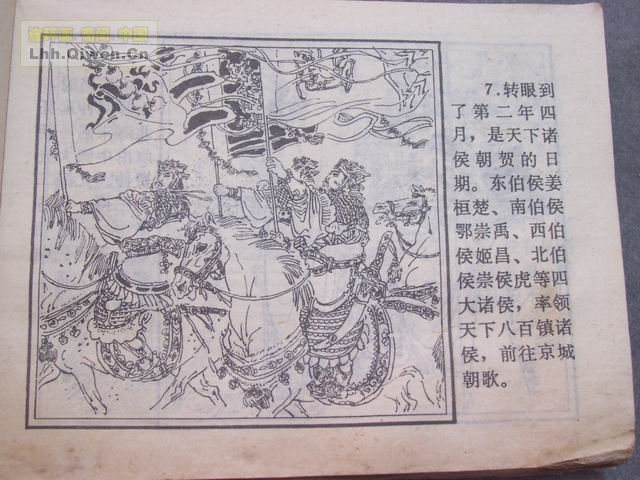 Lhh.Qiwen.Cn
7.转眼到
了第二年四
月，是天下诸
侯朝贺的日
期。东伯侯姜
桓楚、南伯侯
鄂崇禹、西伯
侯姬昌、北伯
侯崇侯虎等四
大诸侯，率领
天下八百镇诸
侯，前往京城
朝歌。